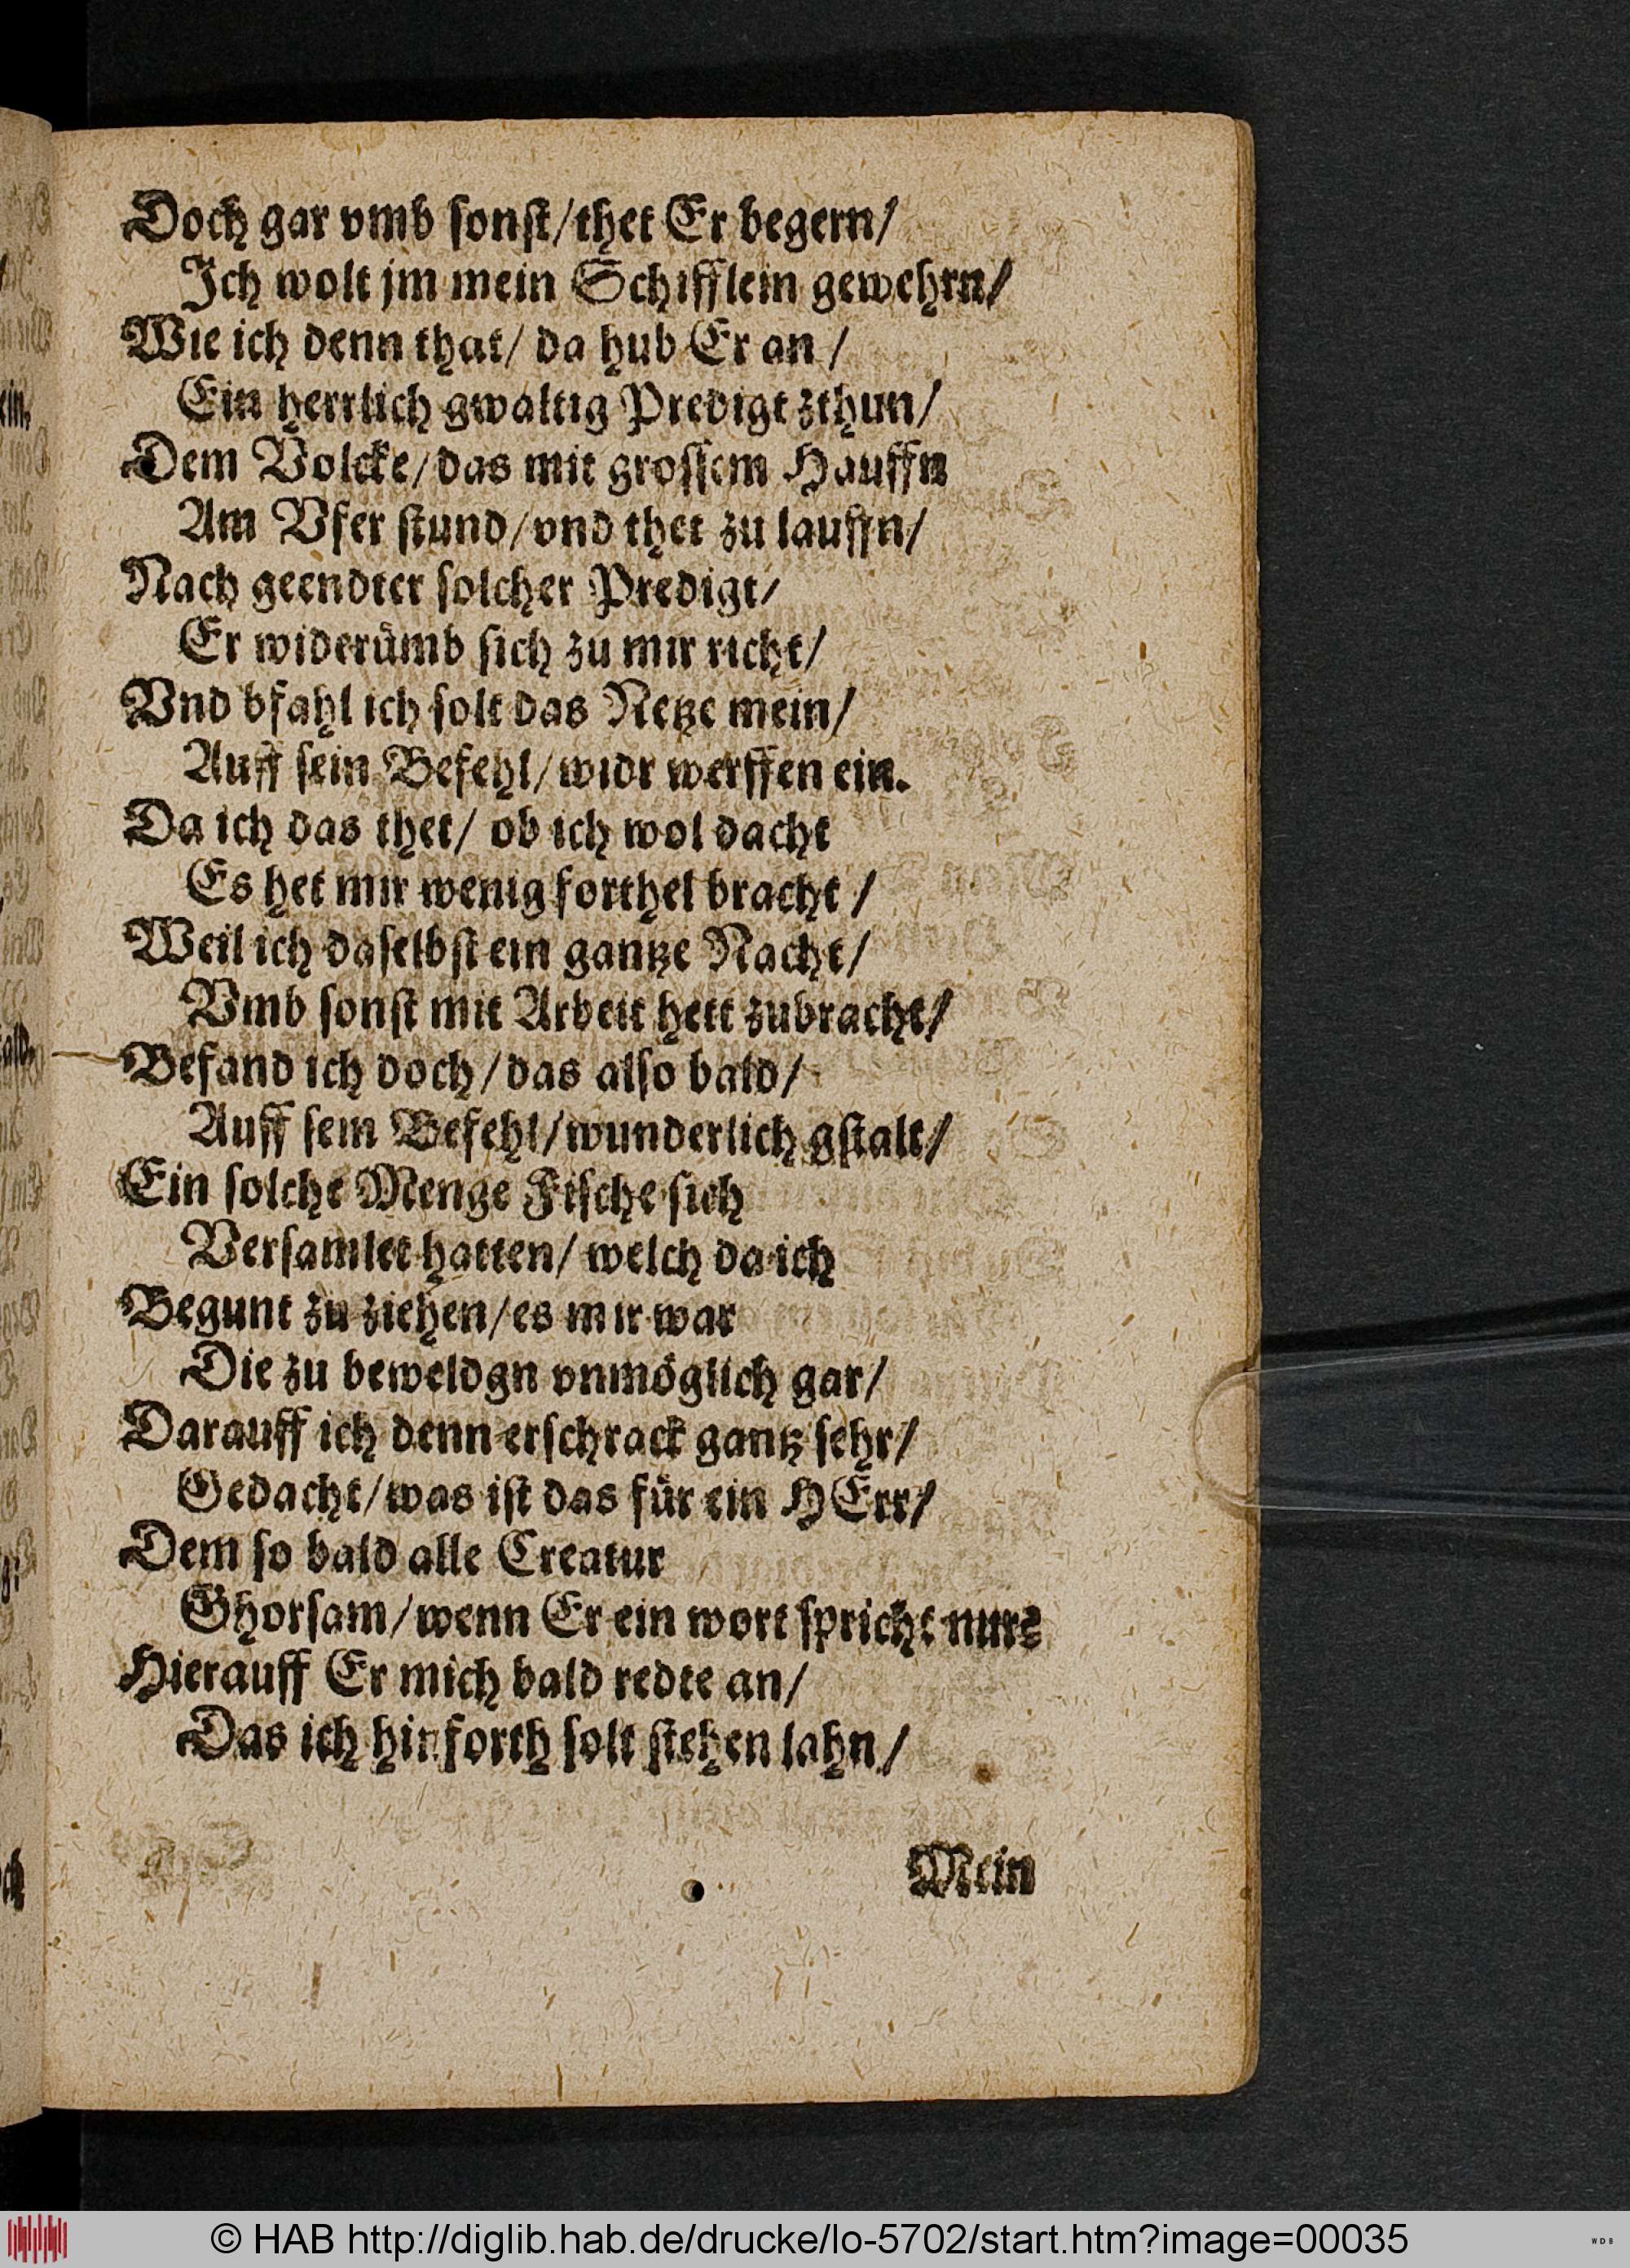 Doch gar vmb ſonſt/thet Er begern/
Ich wolt jm mein Schifflein gewehrn/
Wie ich denn that/ da hub Er an /
Ein herrlich gwaltig Predigt zthun/
Dem Volcke/das mit groſſem Hauffn
Am Vfer ſtund/vnd thet zu lauffn/
Nach geendter ſolcher Predigt/
Er widerümb ſich zu mir richt/
Vnd bfahl ich ſolt das Netze mein/
Auff ſein Befehl/widr werffen ein.
Da ich das thet/ ob ich wol dacht
Es het mir wenig forthel bracht /
Weil ich daſelbſt ein gantze Nacht/
Vmb ſonſt mit Arbeit hett zubracht/
Befand ich doch/das alſo bald/
Auff ſein Befehl/wunderlich gſtalt/
Ein ſolche Menge Fiſche ſich
Verſamlet hatten/ welch da ich
Begunt zu ziehen/es mir war
Die zu beweldgn vnmöglich gar/
Darauff ich denn erſchrack gantz ſehr/
Gedacht/was iſt das für ein HErr/
Dem ſo bald alle Creatur
Ghorſam/wenn Er ein wort ſpricht nur:
Hierauff Er mich bald redte an/
Das ich hinforth ſolt ſtehen lahn/
Mein
© HAB http://diglib.hab.de/drucke/lo-5702/start.htm?image=00035
WDB